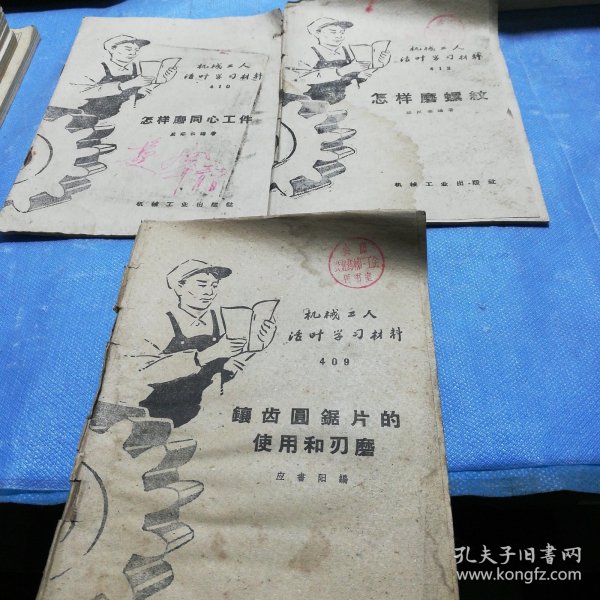 机械工人
活叶学习材料
410
怎样磨同心工件
机械工业出版社
机械工人
活叶学习材料
412
怎样磨螺纹
机械工业出版社
机械工人
活叶学习材料
409
鑲齿圓鋸片的
使用和刃磨
应書阳編
孔夫子旧书网
www.kongfz.com